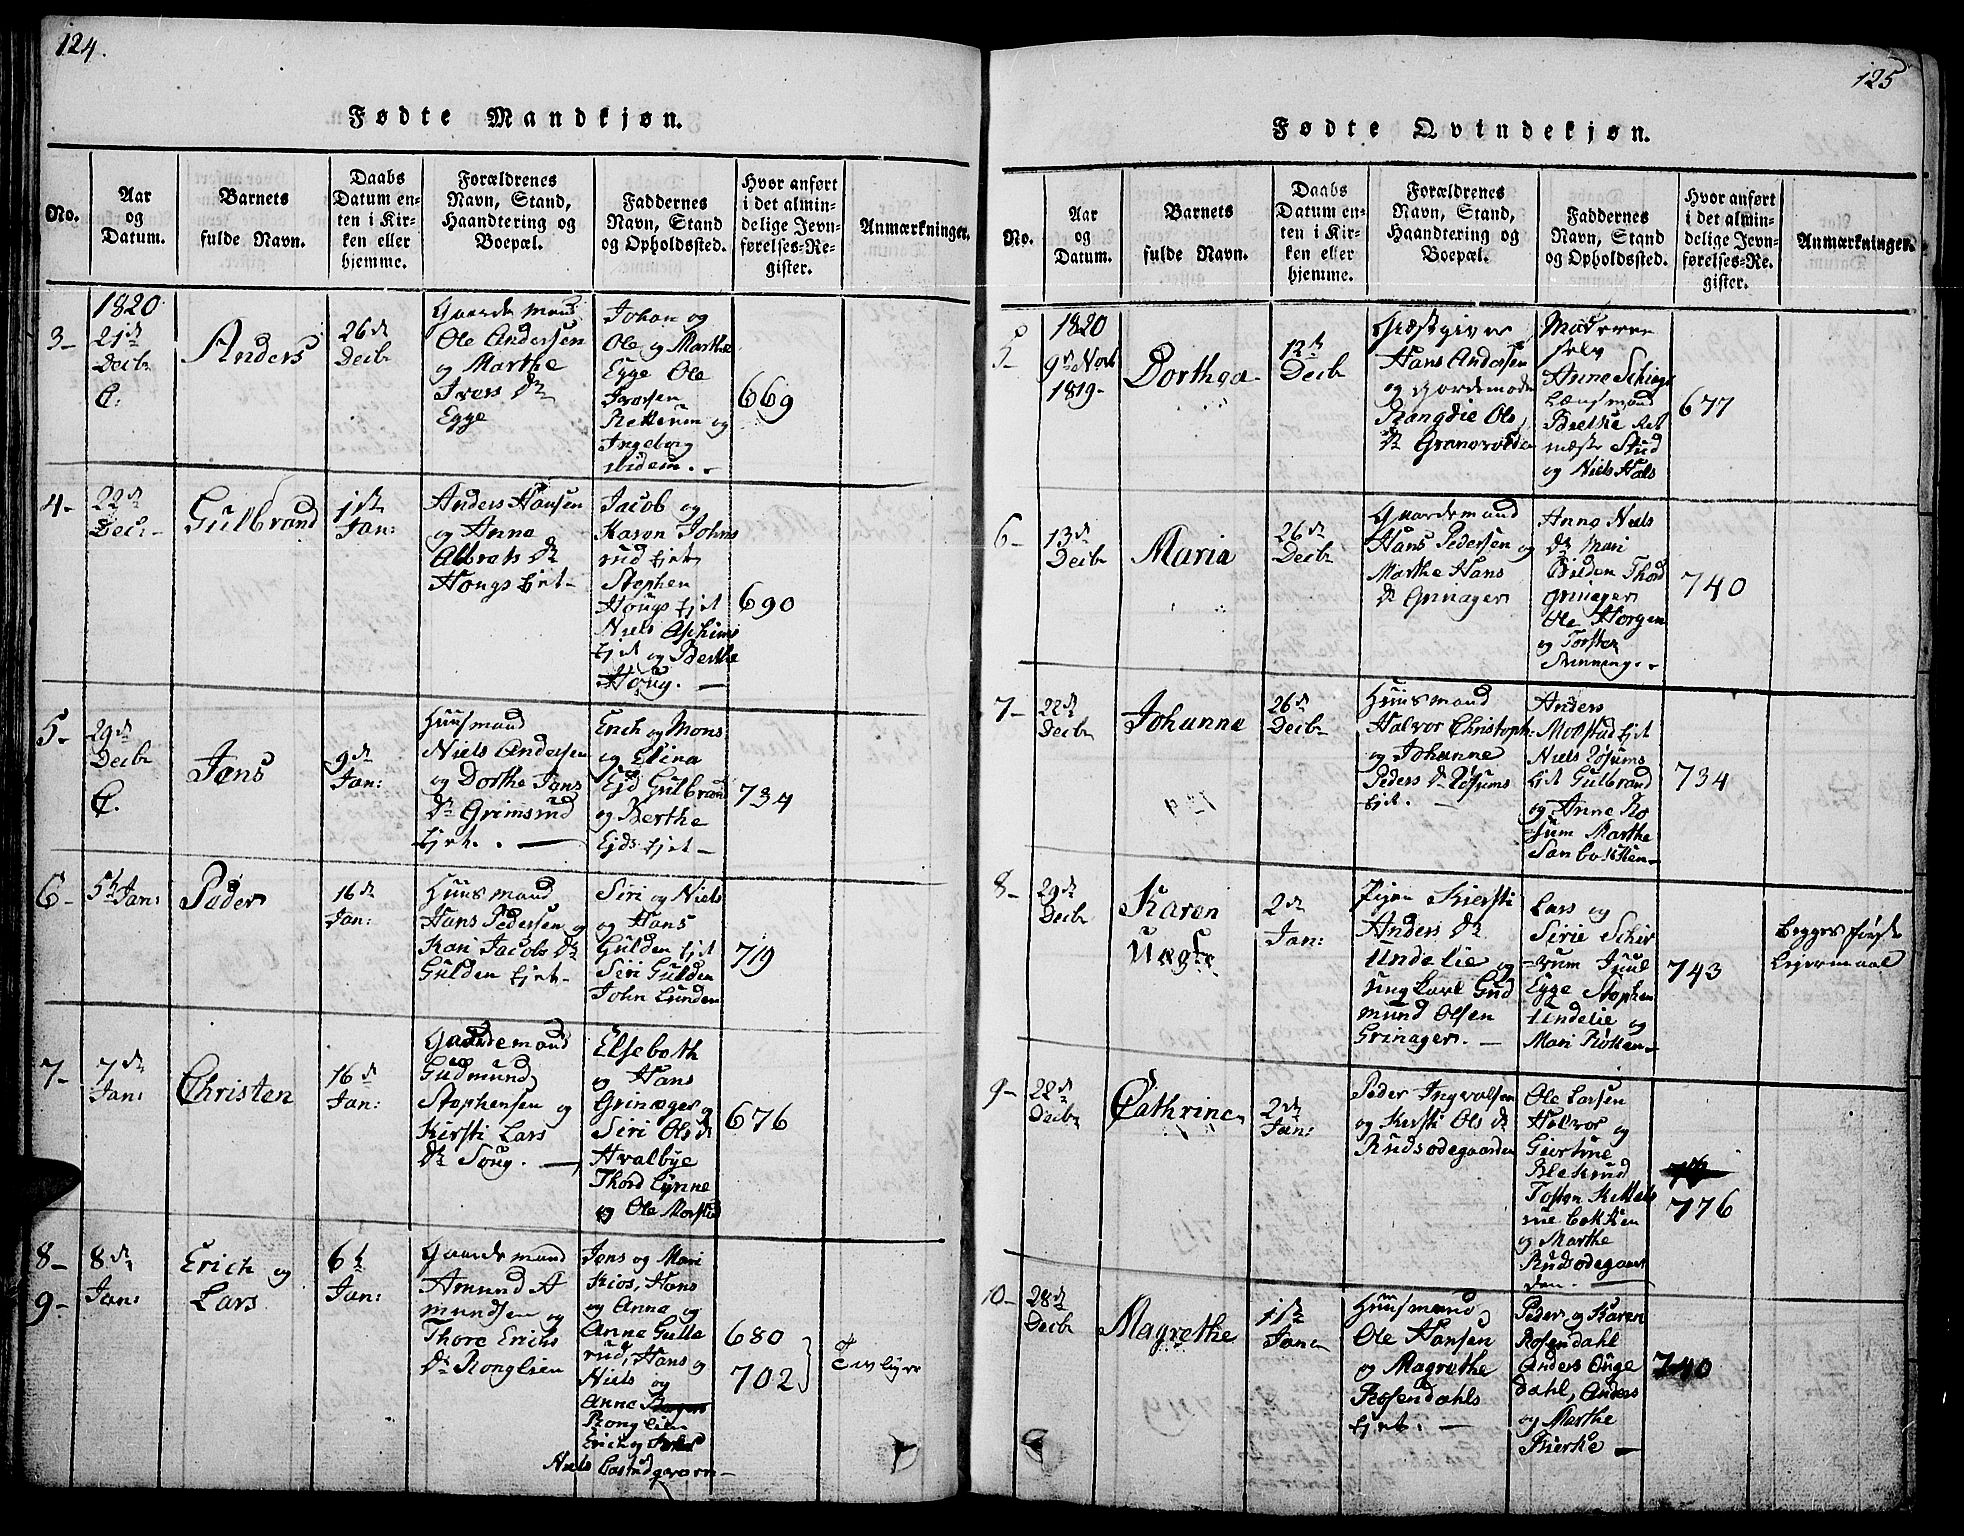 124.
Fødte Mandkjøn.
No.
Aar
og
Datum.
Barnets
fulde Navn.
Daabs
Datum en-
ten i Kir-
ken eller
hjemme.
Forældrenes
Navn, Stand,
Haandtering og
Boepæl.
Faddernes
Navn, Stand
og Opholdssted.
Hvor anført
i det almin-
delige Jevn-
førelses-Re-
gister.
Anmærkninger.
3-
1820
21de
Decbr
C.
Anders
26de
Decbr
Gaardemand
Ole Andersen
og Marthe
Ivers Dr
Egge
Johan og
Ole og Marthe
Egge Ole
Iversen
og
Ingeborg
ibidem.
669
4-
22de
Decbr
Gulbrand
1ste
Jan:
Anders Hansen
og Anne
Albrets Dr
Hougs Ejet-
Jacob og
Karen Johns
rud Ejet
Stephen
Hougs Ejet
Niels Aschims
Ejet og Berthe
Houg.
690
5-
29de
Decbr
C.
Jens
9de
Jan:
Huusmand
Niels Andersen
og Dorthe Jens
Dr Grimsrud
Ejet.
Erich og Mons
og Elina
Ejd Gulbrand
og Berthe
Ejds Ejet-
734
6-
5te Jan:
Peder
16de
Jan:
Huusmand
Hans Pedersen og
Kari Jacobs Dr
Gulden Ejet-
Siri og Niels
og Hans
Gulden Ejet
Siri Gulden
John Lunden
719
7-
7de
Jan:
Christen
16de
Jan:
Gaardemand
Gudmund
Stephensen og
Kirsti Lars
Dr Soug.
Elsebeth
og Hans
Grinager og
Siri Ols Dr
Hvalbye
Thord Lynne
og Ole Morstad
676
8-
9-
8de
Jan:
Erich og
Lars
6te
Jan:
Gaardemand
Amund A
mundsen og
Thore Erichs
Dr Ronglien
Jens og Mari
Kios, Hans
og Anne og
Anne Gulle
rud, Hans og
Niels og
Anne
Ronglien
Erich og
Niels
680
702
Tvilling
125
Fødte Qvindekjøn.
No.
Aar
og
Datum.
Barnets
fulde Navn.
Daabs
Datum en-
ten i Kir-
ken eller
hjemme.
Forældrenes
Navn, Stand,
Haandtering og
Boepæl.
Faddernes
Navn, Stand
og Opholdssted.
Hvor anført
i det almin-
delige Jevn-
førelses-Re-
gister.
Anmærkninger.
5-
1820
9de Novbr
1819-
Dorthea
12te
Decbr
Gjæstgiver
Hans Andersen
og
Rangdie Ols
Dr Granvolden
selv
Anne
Lænsmand
og Niels Hals
677
6-
13de
Decbr
Maria
26de
Decbr
Gaardemand
Hans Pedersen og
Marthe Hans
Dr Grinager
Anne Niels
Dr Mari
Bilden Thord
Grinager
Ole Horgen
og Torsten
740
7-
22de
Decbr
Johanne
26de
Decbr
Huusmand
Halvor Christoph
og Johanne
Peders Dr Røsums
Ejet.
Anders
Molstad Ejet
Niels Røsums
Ejet Gulbrand
og Anne Rø
sum Marthe
734
8-
29de
Decbr
Karen
Uægte
2de
Jan:
Pigen Kiersti
Anders Dr
Undelie og
ungkarl Gud
mund Olsen
Grinager.
Lars og
Sirie Schir
=vum Juul
Egge Stephen
Undelie og
Mari
743
Begges første
Lejermaal
9-
28de
Decbr
Cathrine
2de
Jan:
Peder Ingvalsen
og Kersti Ols Dr
Rudsødegaarden
Ole Larsen
Halvor og
Giertrue
Blekrud
og Marthe
Rudsødegaar
den.
776
10-
28de
Decbr
Magrethe
1ste
Jan
Huusmand
Ole Hansen
og Magrethe
Rosendahls
Ejet.
Peder og Karen
Rosendahl
Anders Ouge
dahl, Anders
og Marthe
Bierke
740